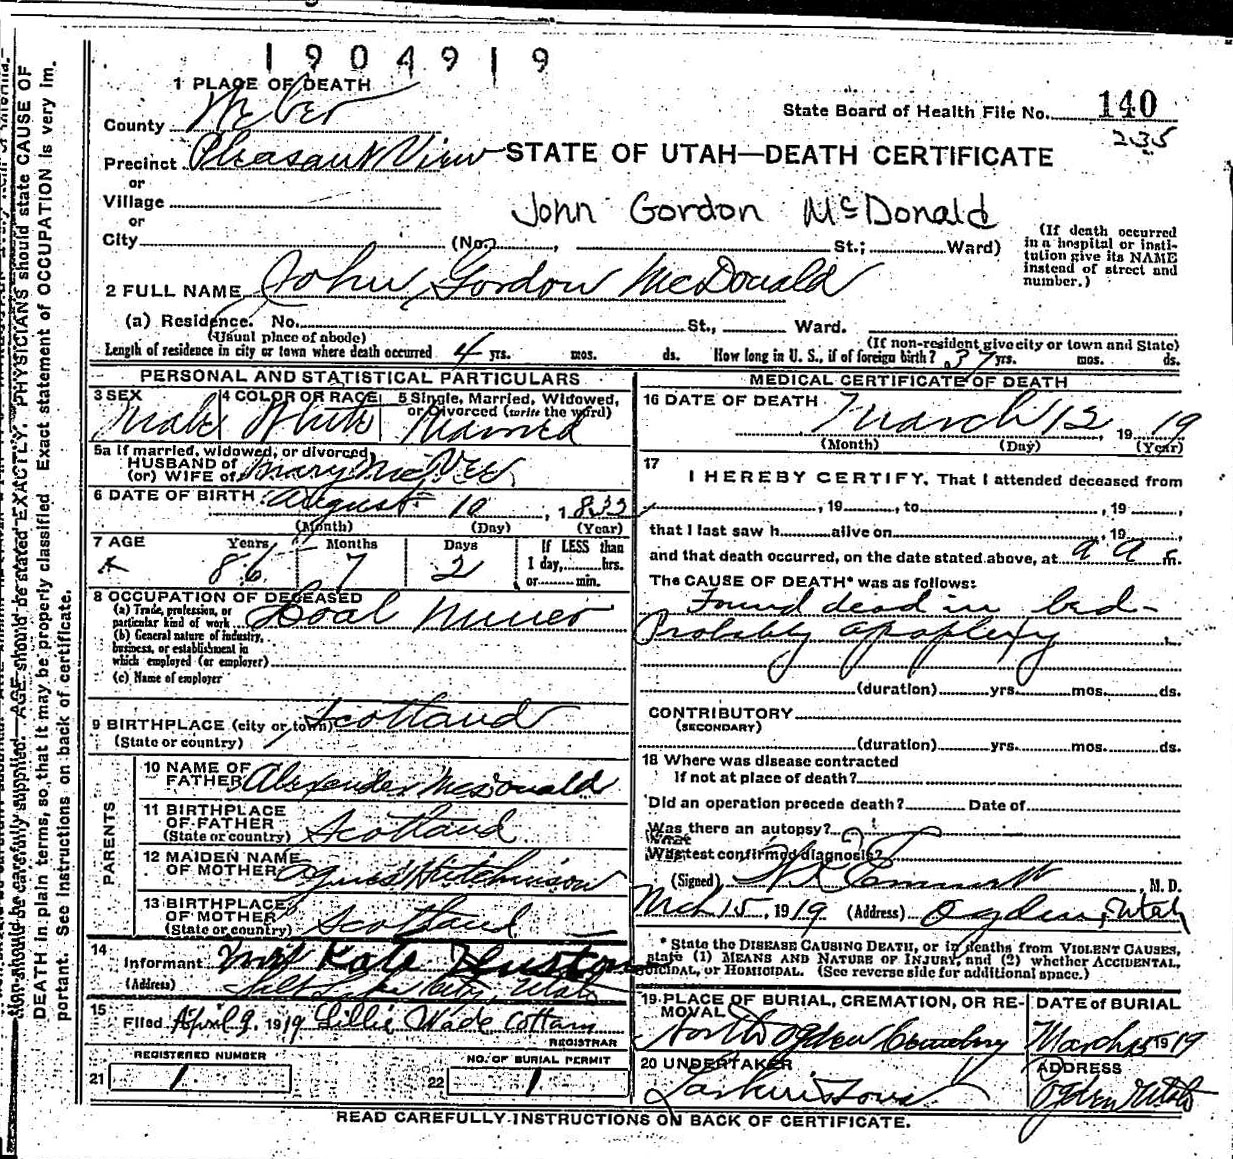 1904919
1 PLACE OF DEATH
State Board of Health File No. 140
235
County Weber
Precinct Pleasant View
STATE OF UTAH—DEATH CERTIFICATE
or
Village
John Gordon McDonald
or
City (No. , St.; Ward)
(If death occurred in a hospital or institution give its NAME instead of street and number.)
2 FULL NAME John Gordon McDonald
(a) Residence. No. St., Ward.
(Usual place of abode) (If non-resident give city or town and State)
Length of residence in city or town where death occurred 4 yrs. mos. ds. How long in U. S., if of foreign birth? 37 yrs. mos. ds.
PERSONAL AND STATISTICAL PARTICULARS
3 SEX Male
4 COLOR OR RACE White
5 Single, Married, Widowed, or Divorced (write the word) Married
5a If married, widowed, or divorced
HUSBAND of
(or) WIFE of Mary McVee
6 DATE OF BIRTH August 10, 1832
(Month) (Day) (Year)
7 AGE Years Months Days If LESS than
86 7 2 1 day, hrs.
or min.
8 OCCUPATION OF DECEASED
(a) Trade, profession, or
particular kind of work Coal Miner
(b) General nature of industry,
business, or establishment in
which employed (or employer)
(c) Name of employer
9 BIRTHPLACE (city or town) Scotland
(State or country)
PARENTS
10 NAME OF
FATHER Alexander McDonald
11 BIRTHPLACE
OF FATHER
(State or country) Scotland
12 MAIDEN NAME
OF MOTHER Agnes Hutchinson
13 BIRTHPLACE
OF MOTHER
(State or country) Scotland
14
Informant Mrs Kate Huston
(Address) Salt Lake City, Utah
15
Filed April 9, 1919 Lillie Wade Cottam
REGISTRAR
REGISTERED NUMBER
21 1
NO. OF BURIAL PERMIT
22 1
MEDICAL CERTIFICATE OF DEATH
16 DATE OF DEATH March 12, 1919
(Month) (Day) (Year)
17
I HEREBY CERTIFY, That I attended deceased from
, 19 , to , 19 ,
that I last saw h alive on , 19 ,
and that death occurred, on the date stated above, at m.
The CAUSE OF DEATH* was as follows:
Found dead in bed-
Probably apoplexy
(duration) yrs. mos. ds.
CONTRIBUTORY
(SECONDARY)
(duration) yrs. mos. ds.
18 Where was disease contracted
if not at place of death?
Did an operation precede death? Date of
Was there an autopsy?
What test confirmed diagnosis?
(Signed) Emmett, M. D.
Mch 15, 1919 (Address) Ogden, Utah
* State the DISEASE CAUSING DEATH, or in deaths from VIOLENT CAUSES,
state (1) MEANS AND NATURE OF INJURY, and (2) whether ACCIDENTAL,
SUICIDAL, or HOMICIDAL. (See reverse side for additional space.)
19 PLACE OF BURIAL, CREMATION, OR REMOVAL
North Ogden Cemetery
DATE of BURIAL
March 15 1919
20 UNDERTAKER
Larkin & Sons
ADDRESS
Ogden Utah
READ CAREFULLY INSTRUCTIONS ON BACK OF CERTIFICATE.
tion should be carefully supplied. AGE should be stated EXACTLY. PHYSICIANS should state CAUSE OF
DEATH in plain terms, so that it may be properly classified. Exact statement of OCCUPATION is very im-
portant. See instructions on back of certificate.